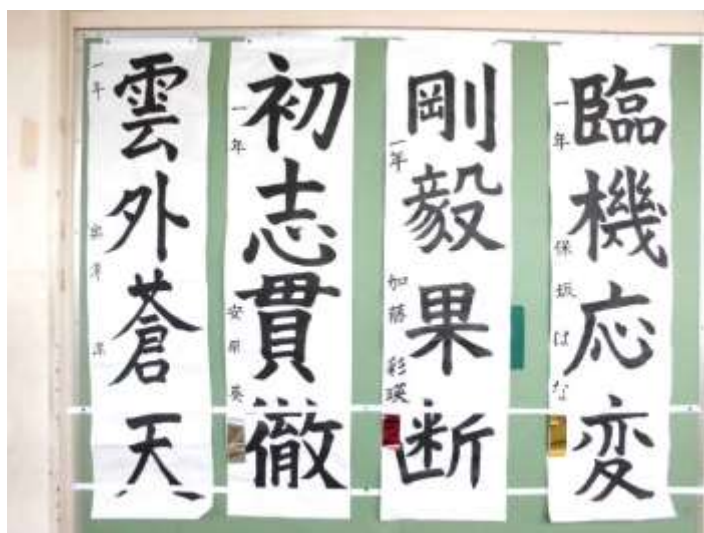 臨機応変
一年 保坂はな
剛毅果断
一年 加藤彩瑛
初志貫徹
一年 安原 英
雲外蒼天
一年